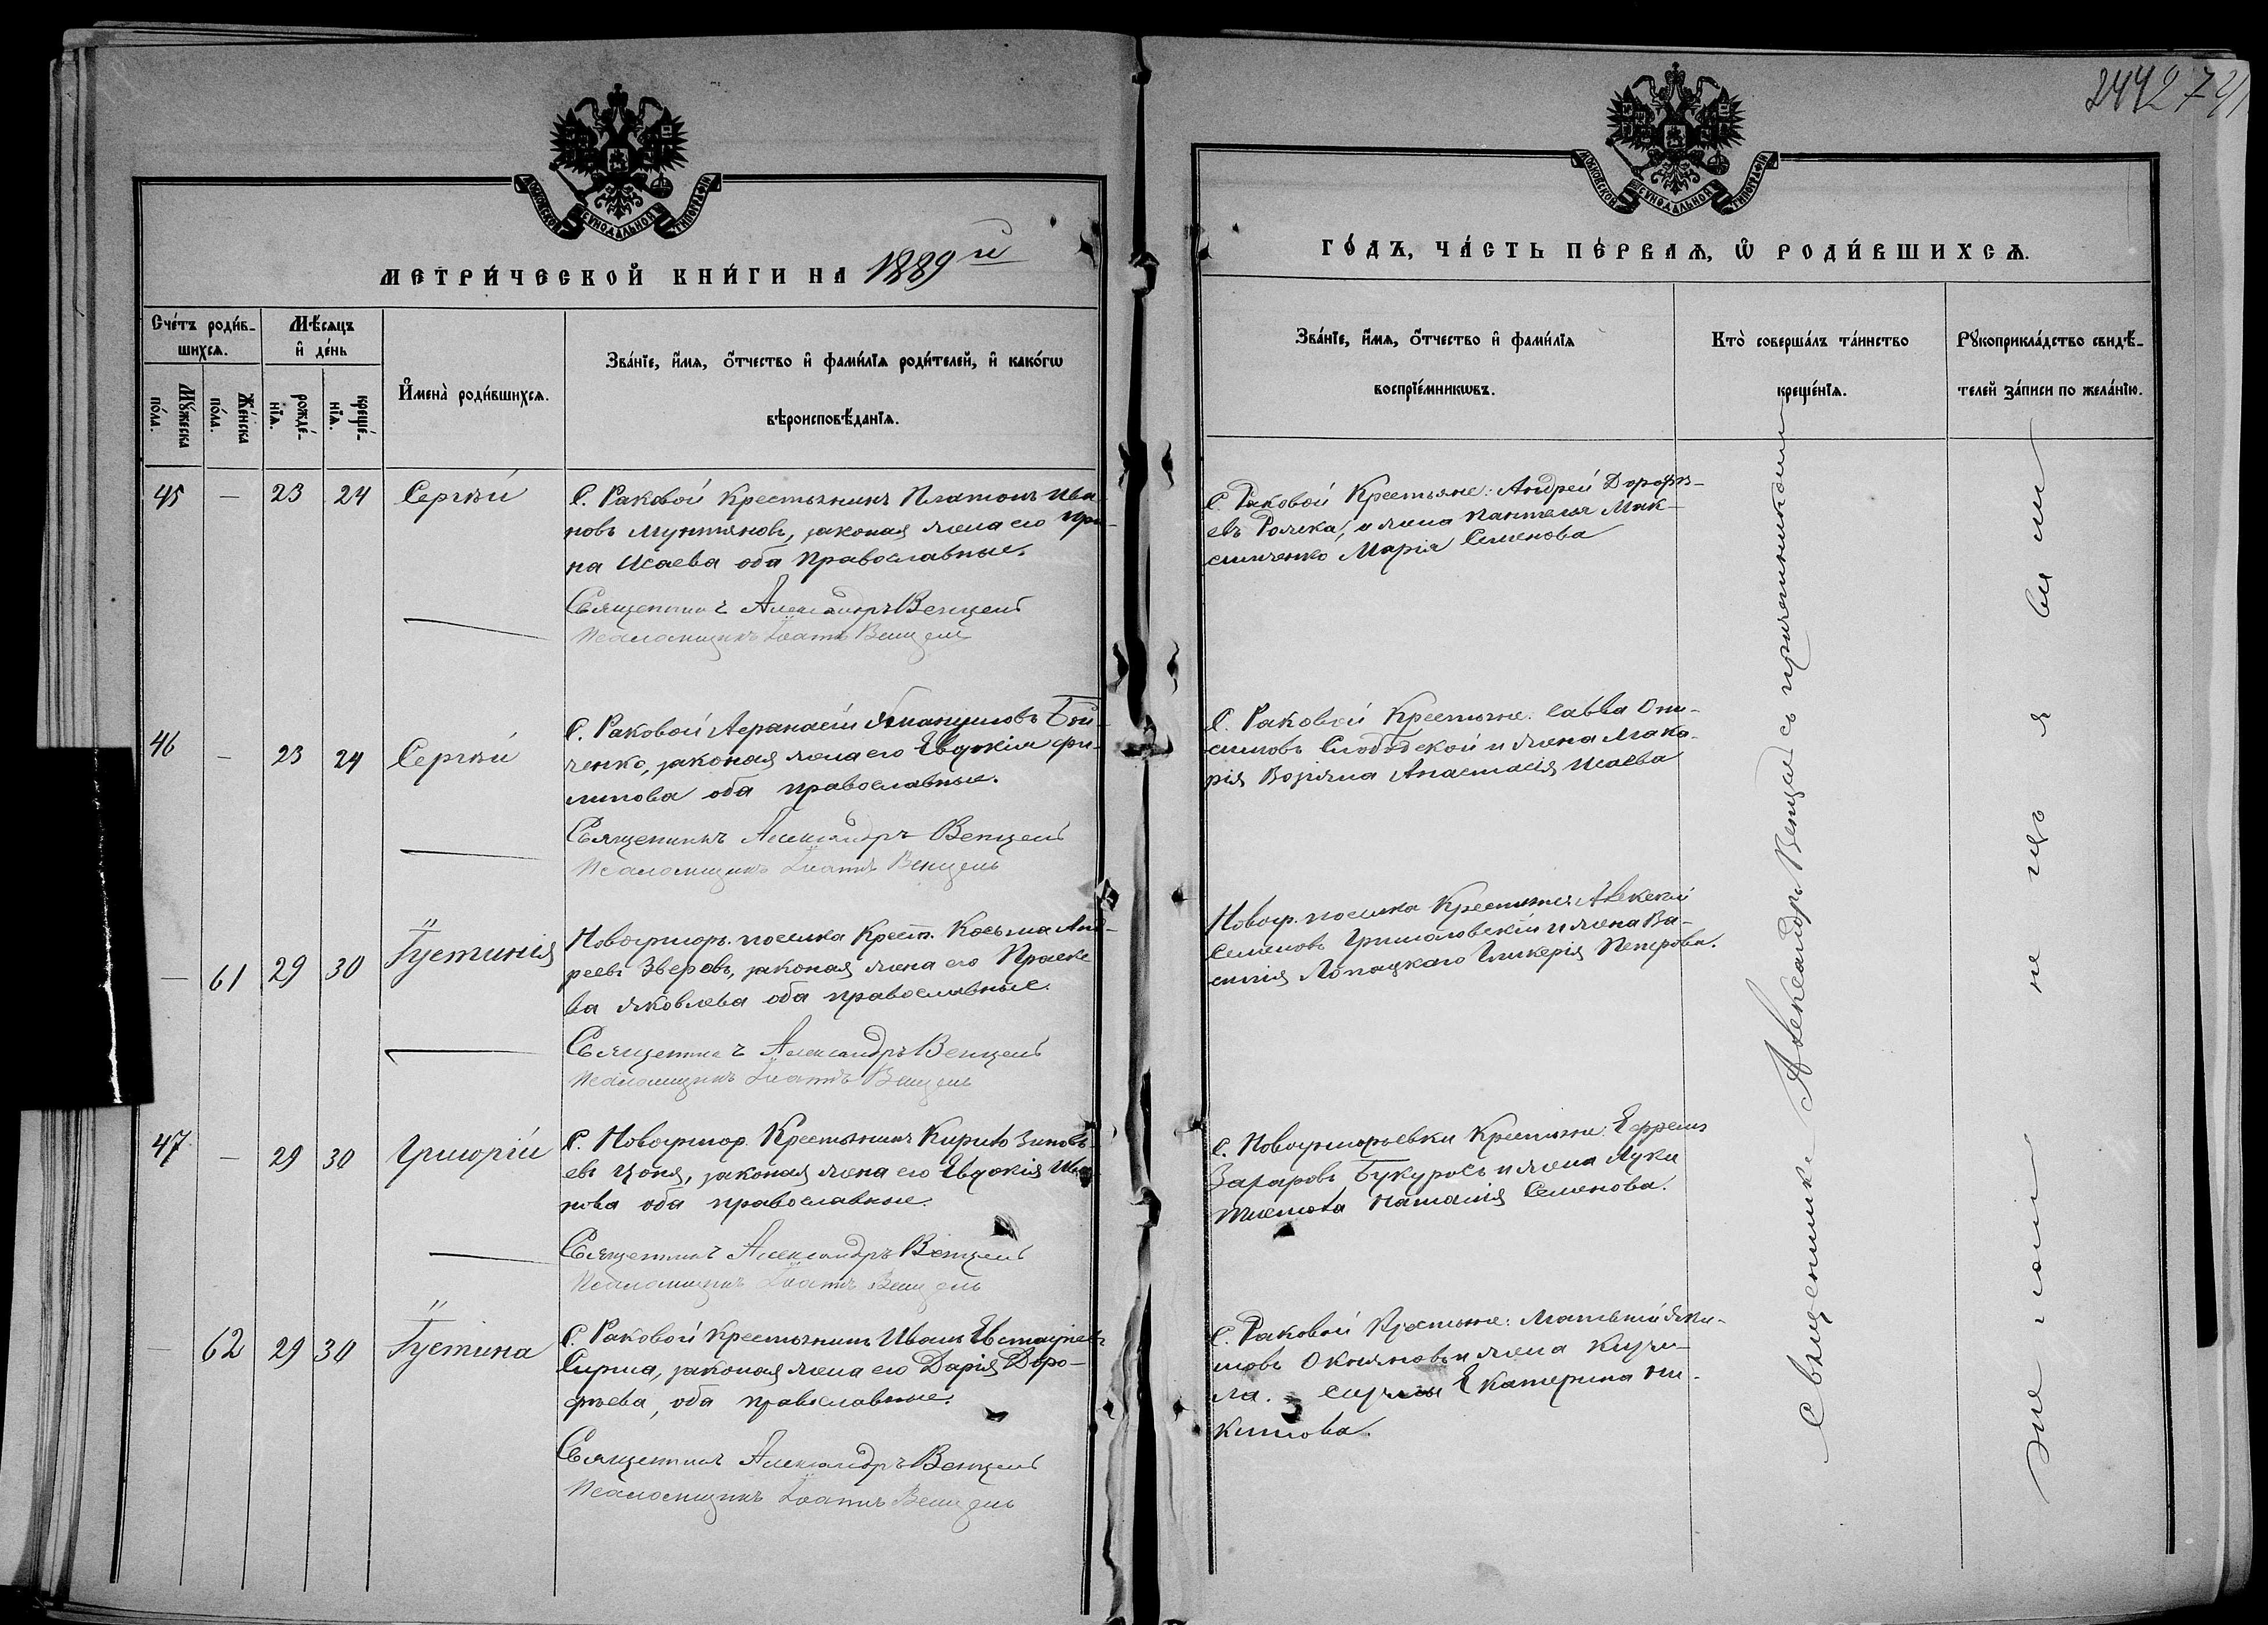 МОСКОВСКОЙ СѴНОДАЛЬНОЙ ТИПОГРАФІИ
МЕТРИ́ЧЕСКОЙ КНИ́ГИ НА 1889й
Сче́тъ роди́в-
шихсѧ.
Мѣ́сяцъ
и҆ де́нь
Мꙋ́жеска
по́ла.
Же́нска
по́ла.
рожде́-
нїѧ.
креще́-
нїѧ.
И҆мена̀ роди́вшихсѧ.
Зва́нїе, и҆́мѧ, ѻ҆́тчество и҆ фами́лїѧ роди́телей, и҆ како́гѡ
вѣроисповѣ́данїѧ.
45 — 23 24 Сергѣй
С. Раковой Крестьянинъ Платонъ Ива-
новъ Мунтяновъ, законая жена его Ири-
на Исаева оба Православные.
Священникъ Александръ Венцель
Псаломщикъ Іоаннъ Венцель
46 — 23 24 Сергѣй
С. Раковой Аѳанасій Емануиловъ Бой-
ченко, законая жена его Евдокія Фи-
липова оба православные.
Священникъ Александръ Венцель
Псаломщикъ Іоаннъ Венцель
— 61 29 30 Іустинія
Новогригор. поселка Крест. Косьма Анд-
реевъ Зверевъ, законая жена его Праске
ва Яковлева оба православные.
Священникъ Александръ Венцель
Псаломщикъ Іоаннъ Венцель
47 — 29 30 Григорій
С. Новогригор. Крестьянинъ Кирило Зиновь-
евъ Цоня, законая жена его Евдокія Ива
нова оба православные.
Священникъ Александръ Венцель
Псаломщикъ Іоаннъ Венцель
— 62 29 30 Іустина
С. Раковой Крестьянинъ Иванъ Евстафіевъ
Сирма, законая жена его Дарія Доро-
фѣева, оба православные.
Священникъ Александръ Венцель
Псаломщикъ Іоаннъ Венцель
МОСКОВСКОЙ СѴНОДАЛЬНОЙ ТИПОГРАФІИ
ГО́ДЪ, ЧА́СТЬ ПЕ́РВАѦ, Ѽ РОДИ́ВШИХСѦ.
Зва́нїе, и҆́мѧ, ѻ҆́тчество и҆ фами́лїѧ
воспрїе́мникѡвъ.
Кто̀ соверша́лъ та́инство
креще́нїѧ.
Рꙋкоприкла́дство свидѣ́-
телей за́писи по жела́нїю.
С. Раковой Крестьяне: Андрей Дорофѣ-
евъ и жена Пантелея Мак-
симченко Марія Семенова
С. Раковой Крестьяне: Савва Они-
симовъ Слободской и жена Мака-
рія Возіяна Анастасія Исаева
Новогр. поселка Крестьяне Алексѣй
Семеновъ Григоловскій и жена Ва-
силія Лопацкаго Гликерія Петрова.
С. Новогригорьевки Крестьяне: Ефремъ
Захаровъ Букуросъ и жена Луки
Наталія Семенова.
С. Раковой Крестьяне: Матвѣй Яки-
мовъ Окняновъ и жена Кири-
ла Екатерина Ни-
китова.
Священникъ Александръ Венцель съ причетникомъ